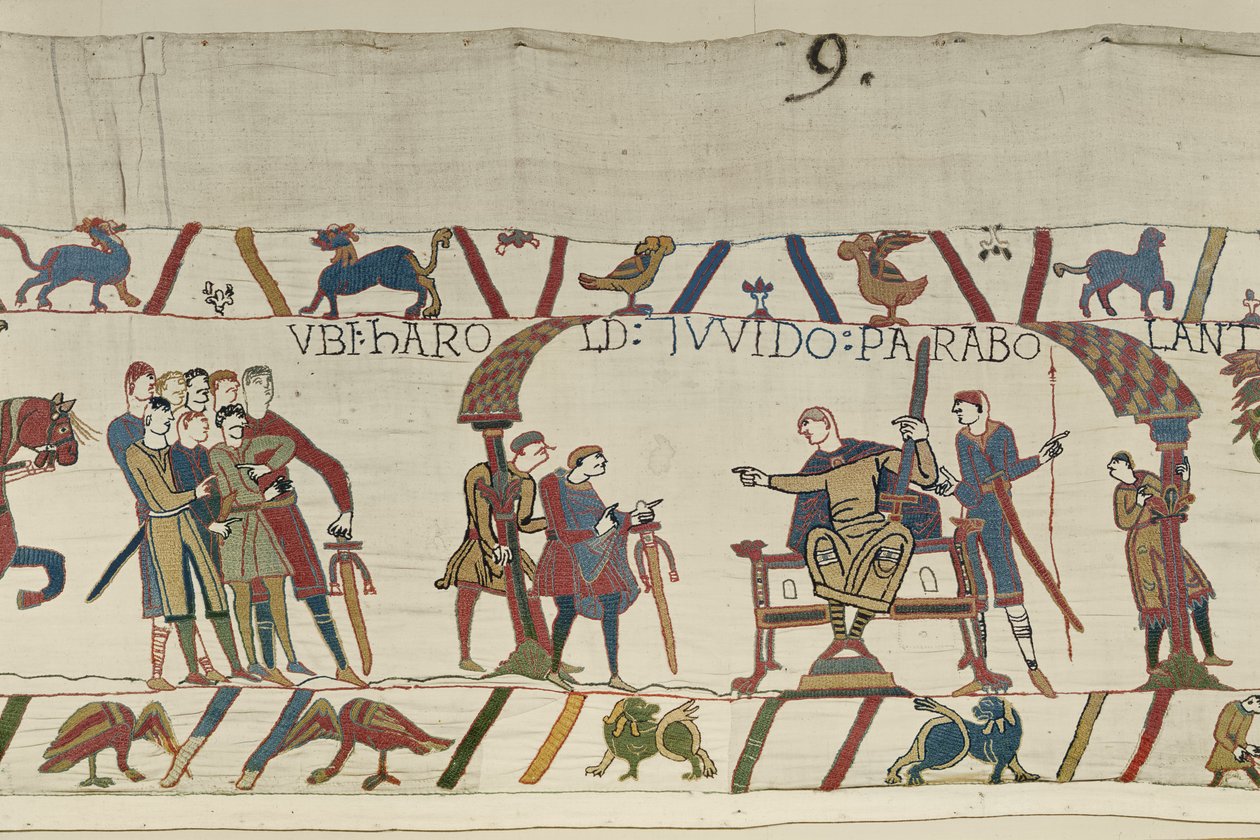 9.
VBI: hARO LD: ⁊VVIDO: PARABO LANT